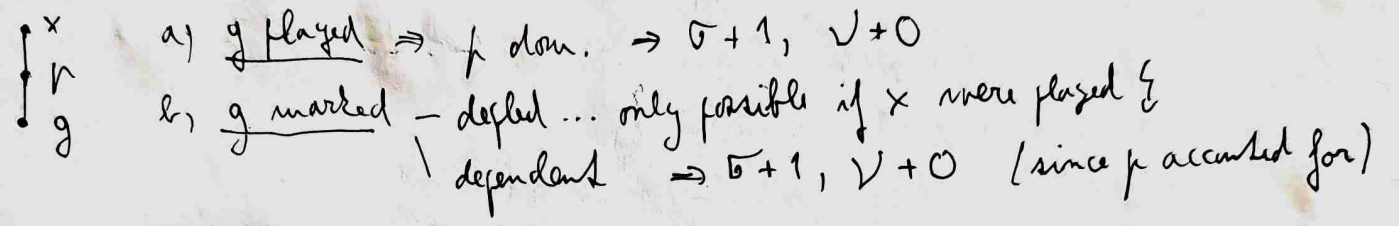 x a) g played ⇒ p dom. → σ+1, ν+0
p b) g marked – defled... only possible if x were played ↯
g \ dependent ⇒ σ+1, ν+0 (since p accounted for)